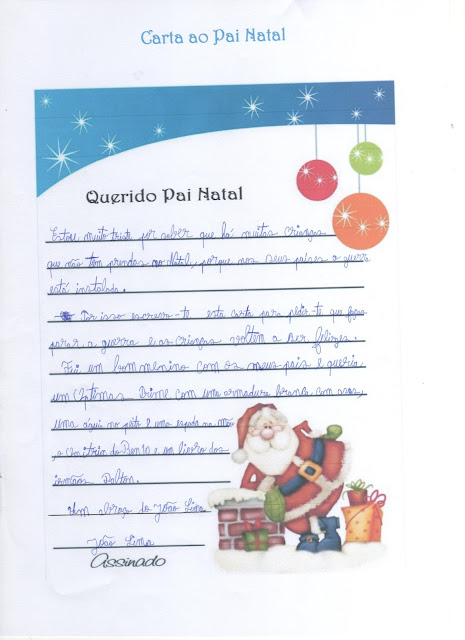 Carta ao Pai Natal
Querido Pai Natal
Estou muito triste por saber que há muitas crianças
que não têm prendas no Natal, porque nos seus países a guerra
está instalada.
Por isso escrevo-te esta carta para pedir-te que faças
parar a guerra e as crianças voltem a ser felizes.
Fui um bom menino com os meus pais e queria
um Optimas Prime com uma armadura branca, com asas,
uma águia no peito e uma espada na mão
, o Omnitrix do Ben 10 e um livro dos
irmãos Dalton.
Um abraço do João Lima
João Lima
Assinado